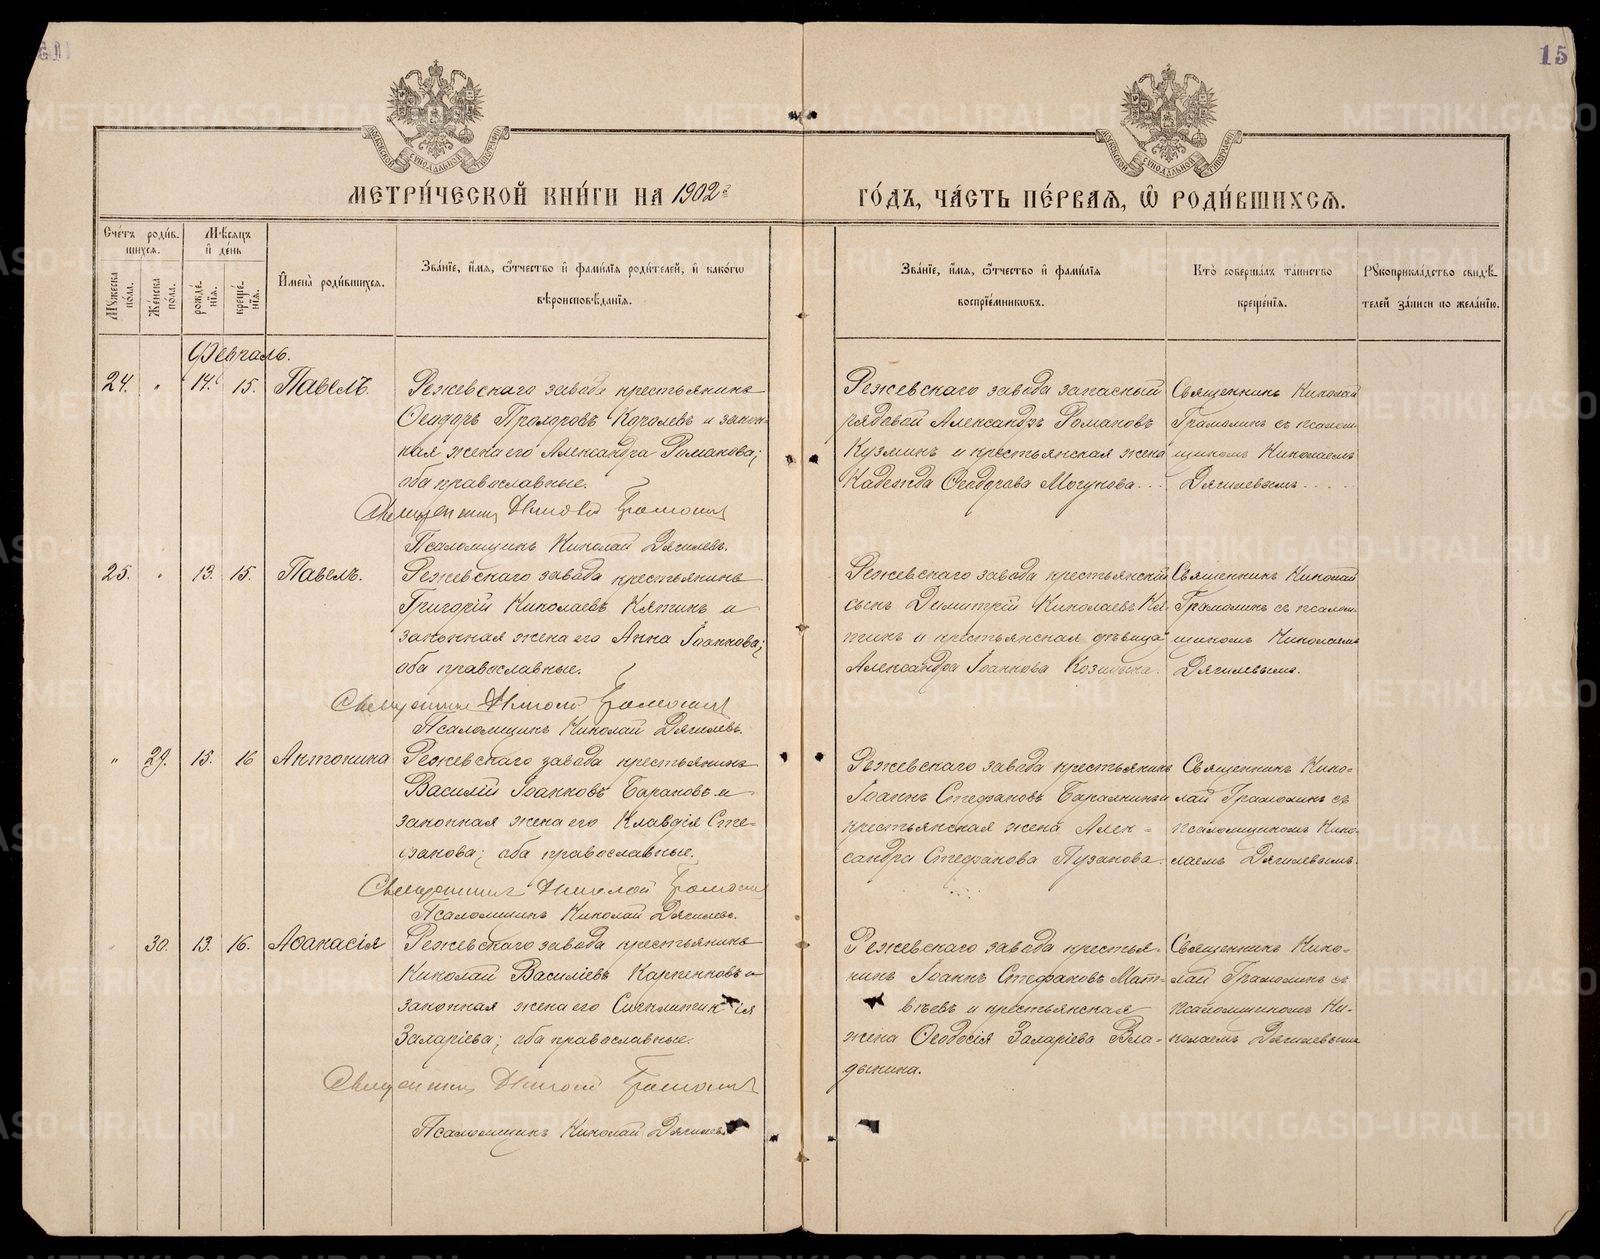 15
МОСКОВСКОЙ СѴНОДАЛЬНОЙ ТИПОГРАФІИ
МОСКОВСКОЙ СѴНОДАЛЬНОЙ ТИПОГРАФІИ
МЕТРИ́ЧЕСКОЙ КНИ́ГИ НА 1902й
ГО́ДЪ, ЧА́СТЬ ПЕ́РВАѦ, Ѡ҆ РОДИ́ВШИХСѦ.
Сче́тъ роди́в-
шихсѧ.
Мꙋ́жеска по́ла.
Же́нска по́ла.
Мѣ́сѧцъ
и҆ де́нь
рожде́-
нїѧ.
креще́-
нїѧ.
И҆мена̀ роди́вшихсѧ.
Зва́нїе, и҆́мѧ, ѻ҆́тчество и҆ фами́лїѧ роди́телей, и҆ како́гѡ
вѣроисповѣ́данїѧ.
Зва́нїе, и҆́мѧ, ѻ҆́тчество и҆ фами́лїѧ
воспрїе́мникѡвъ.
Кто̀ соверша́лъ та́инство
креще́нїѧ.
Рꙋкоприкла́дство свидѣ́-
телей за́писи по жела́нїю.
Февраль.
24. „ 14. 15. Павелъ.
Режевскаго завода крестьянинъ
Ѳеодоръ Прохоровъ Королевъ и закон-
ная жена его Александра Романова;
оба православные.
Священникъ Николай Грамолинъ
Псаломщикъ Николай Дягилевъ.
Режевскаго завода запасный
рядовой Александръ Романовъ
Кузминъ и крестьянская жена
Надежда Ѳеодорова Могунова...
Священникъ Николай
Грамолинъ съ псалом-
щикомъ Николаемъ
Дягилевымъ....
25. „ 13. 15. Павелъ.
Режевскаго завода крестьянинъ
Григорій Николаевъ Кятинъ и
законная жена его Анна Іоаннова;
оба православные.
Священникъ Николай Грамолинъ
Псаломщикъ Николай Дягилевъ.
Режевскаго завода крестьянскій
сынъ Димитрій Николаевъ Кя-
тинъ и крестьянская дѣвица
Александра Іоаннова Козицына.
Священникъ Николай
Грамолинъ съ псалом-
щикомъ Николаемъ
Дягилевымъ.
„ 29. 15. 16 Антонина
Режевскаго завода крестьянинъ
Василій Іоанновъ Барановъ и
законная жена его Клавдія Сте-
фанова; оба православные.
Священникъ Николай Грамолинъ
Псаломщикъ Николай Дягилевъ.
Режевскаго завода крестьянинъ
Іоаннъ Стефановъ и
крестьянская жена Алек-
сандра Стефанова Пузанова.
Священникъ Нико-
лай Грамолинъ съ
псаломщикомъ Нико-
лаемъ Дягилевымъ.
30. 13. 16. Аѳанасія
Режевскаго завода крестьянинъ
Николай Василіевъ Карпенковъ и
законная жена его Сигклитикія
Захаріева; оба православные.
Священникъ Николай Грамолинъ
Псаломщикъ Николай Дягилевъ
Режевскаго завода крестья-
нинъ Іоаннъ Стефановъ Мат-
вѣевъ и крестьянская
жена Ѳеодосія Захаріева Вла-
дыкина.
Священникъ Нико-
лай Грамолинъ съ
псаломщикомъ Ни-
колаемъ Дягилевымъ
METRIKI.GASO-URAL.RU